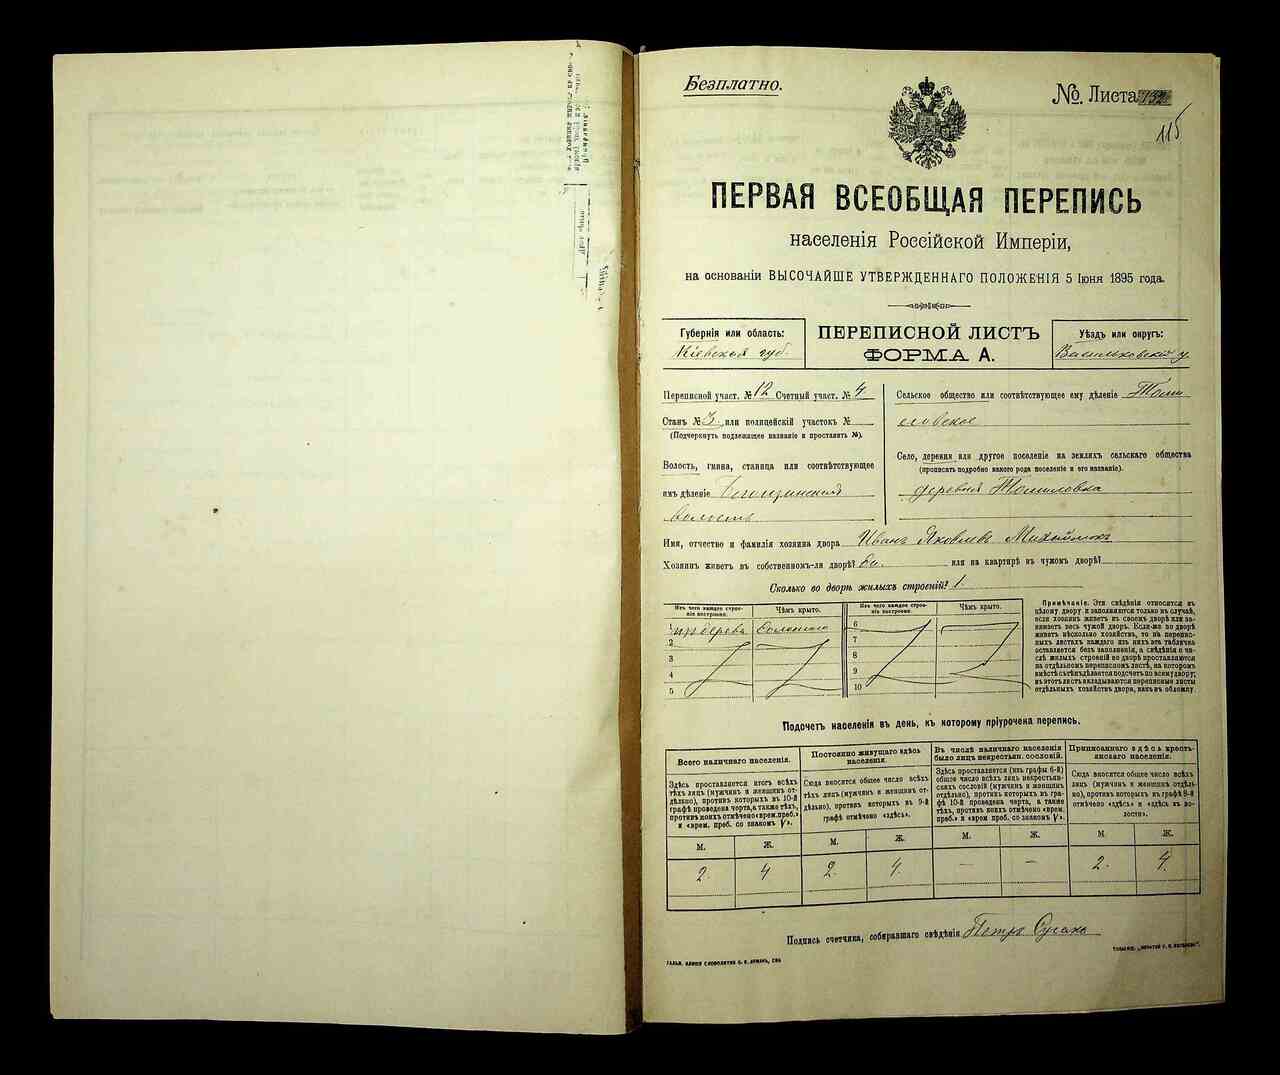 Безплатно.
№ Листа 132
115
ПЕРВАЯ ВСЕОБЩАЯ ПЕРЕПИСЬ
населенія Россійской Имперіи,
на основаніи ВЫСОЧАЙШЕ УТВЕРЖДЕННАГО ПОЛОЖЕНІЯ 5 Іюня 1895 года.
Губернія или область:
Кіевская губ.
ПЕРЕПИСНОЙ ЛИСТЪ
ФОРМА А.
Уѣздъ или округъ:
Васильковскій у.
Переписной участ. № 12 Счетный участ. № 4
Станъ № 3 или полицейскій участокъ №
(Подчеркнуть подлежащее названіе и проставить №).
Волость, гмина, станица или соотвѣтствующее
имъ дѣленіе
волость
Сельское общество или соотвѣтствующее ему дѣленіе Томи
ловское
Село, деревня или другое поселеніе на земляхъ сельскаго общества
(прописать подробно какого рода поселеніе и его названіе).
деревня Томиловка
Имя, отчество и фамилія хозяина двора Иванъ Яковлевъ Михайлюкъ
Хозяинъ живетъ въ собственномъ-ли дворѣ? да. или на квартирѣ въ чужомъ дворѣ?
Сколько во дворѣ жилыхъ строеній? 1.
Изъ чего каждое строе-
ніе построено.
Чѣмъ крыто.
1 изъ дерева Соломою
2
3
4
5
Изъ чего каждое строе-
ніе построено.
Чѣмъ крыто.
6
7
8
9
10
Примѣчаніе. Эти свѣдѣнія относятся къ
цѣлому двору и заполняются только въ случаѣ,
если хозяинъ живетъ въ своемъ дворѣ или за-
нимаетъ весь чужой дворъ. Если-же во дворѣ
живетъ нѣсколько хозяйствъ, то на перепис-
ныхъ листахъ каждаго изъ нихъ эта табличка
оставляется безъ заполненія, а свѣдѣнія о чи-
слѣ жилыхъ строеній во дворѣ проставляются
на отдѣльномъ переписномъ листѣ, на которомъ
вмѣстѣ съ тѣмъ дѣлается подсчетъ по всему двору;
въ этотъ листъ вкладываются переписные листы
отдѣльныхъ хозяйствъ двора, какъ въ обложку.
Подсчетъ населенія въ день, къ которому пріурочена перепись.
Всего наличнаго населенія.
Здѣсь проставляется итогъ всѣхъ
тѣхъ лицъ (мужчинъ и женщинъ от-
дѣльно), противъ которыхъ въ 10-й
графѣ проведена черта, а также тѣхъ,
противъ коихъ отмѣчено «врем. преб.»
и «врем. преб. со знакомъ V».
М. Ж.
2. 4
Постоянно живущаго здѣсь
населенія.
Сюда вносится общее число всѣхъ
тѣхъ лицъ (мужчинъ и женщинъ от-
дѣльно), противъ которыхъ въ 9-й
графѣ отмѣчено «здѣсь».
М. Ж.
2. 4.
Въ числѣ наличнаго населенія
было лицъ некрестьян. сословій.
Здѣсь проставляется (изъ графы 6-й)
общее число всѣхъ лицъ некрестьян-
скихъ сословій (мужчинъ и женщинъ
отдѣльно), противъ которыхъ въ гра-
фѣ 10-й проведена черта, а также
тѣхъ, противъ коихъ отмѣчено «врем.
преб.» и «врем. преб. со знакомъ V».
М. Ж.
— —
Приписаннаго здѣсь кресть-
янскаго населенія.
Сюда вносится общее число всѣхъ
лицъ (мужчинъ и женщинъ отдѣль-
но), противъ которыхъ въ графѣ 8-й
отмѣчено «здѣсь» и «здѣсь въ во-
лости».
М. Ж.
2. 4.
Подпись счетчика, собиравшаго свѣдѣнія Петръ